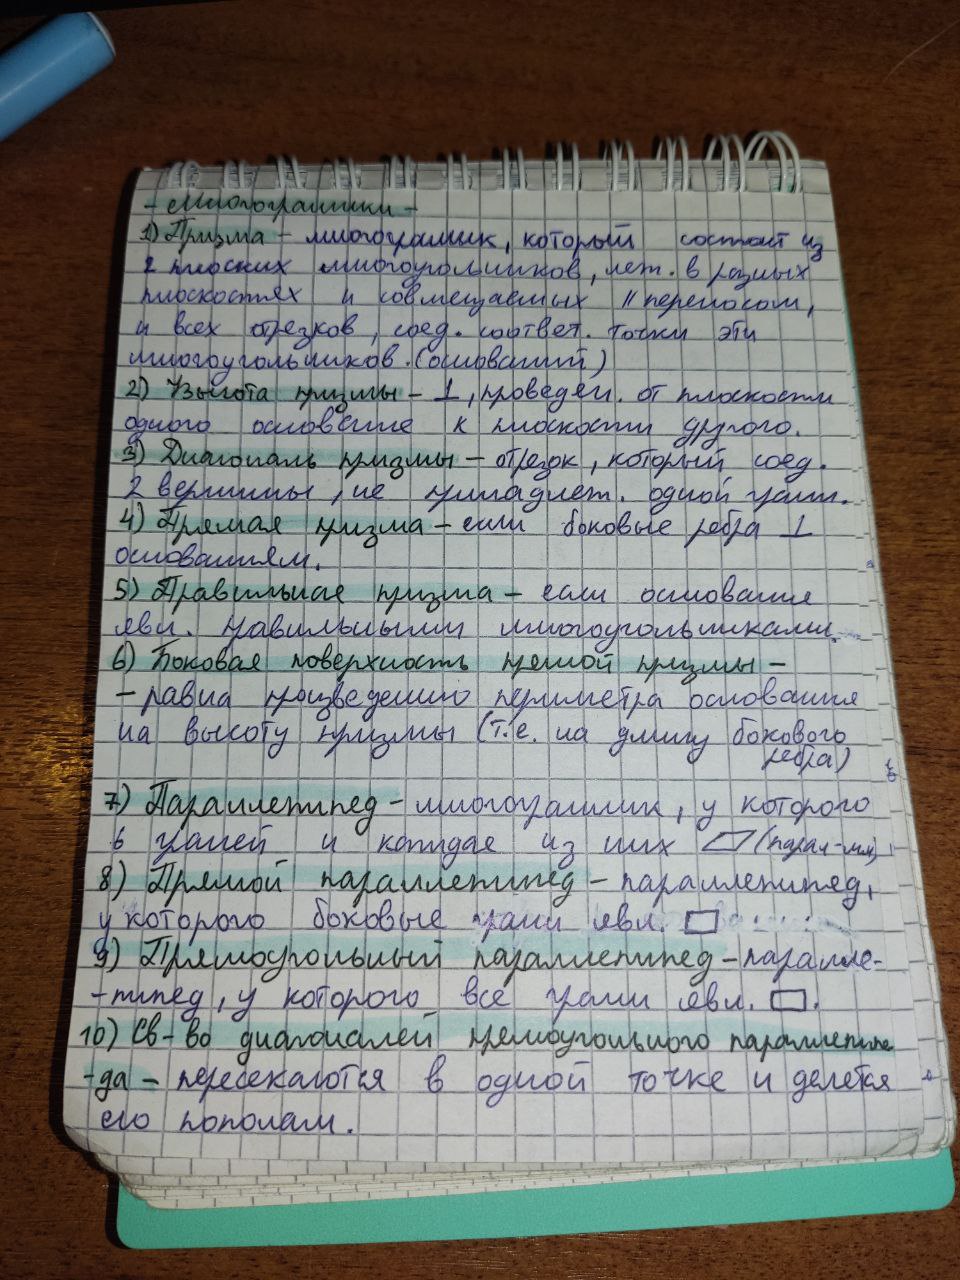 - Многогранники -
1) Призма - многогранник, который состоит из
2 плоских многоугольников, леж. в разных
плоскостях и совмещаемых || переносом,
и всех отрезков, соед. соответ. точки эти
многоугольников. (оснований)
2) Высота призмы - ⊥, проведен. от плоскости
одного основание к плоскости другого.
3) Диагональ призмы - отрезок, который соед.
2 вершины, не принадлеж. одной грани.
4) Прямая призма - если боковые ребра ⊥
основаниям.
5) Правильная призма - если основания
явл. правильными многоугольниками.
6) Боковая поверхность прямой призмы -
- равна произведению периметра основания
на высоту призмы (т.е. на длину бокового
ребра)
7) Параллепипед - многогранник, у которого
6 граней и каждая из них ▱ (парал-мм)
8) Прямой параллепипед - параллепипед,
у которого боковые грани явл. ▭
9) Прямоугольный параллепипед - паралле-
-пипед, у которого все грани явл. ▭.
10) Св-во диагоналей прямоугольного параллепипе
-да - пересекаются в одной точке и делятся
ею пополам.